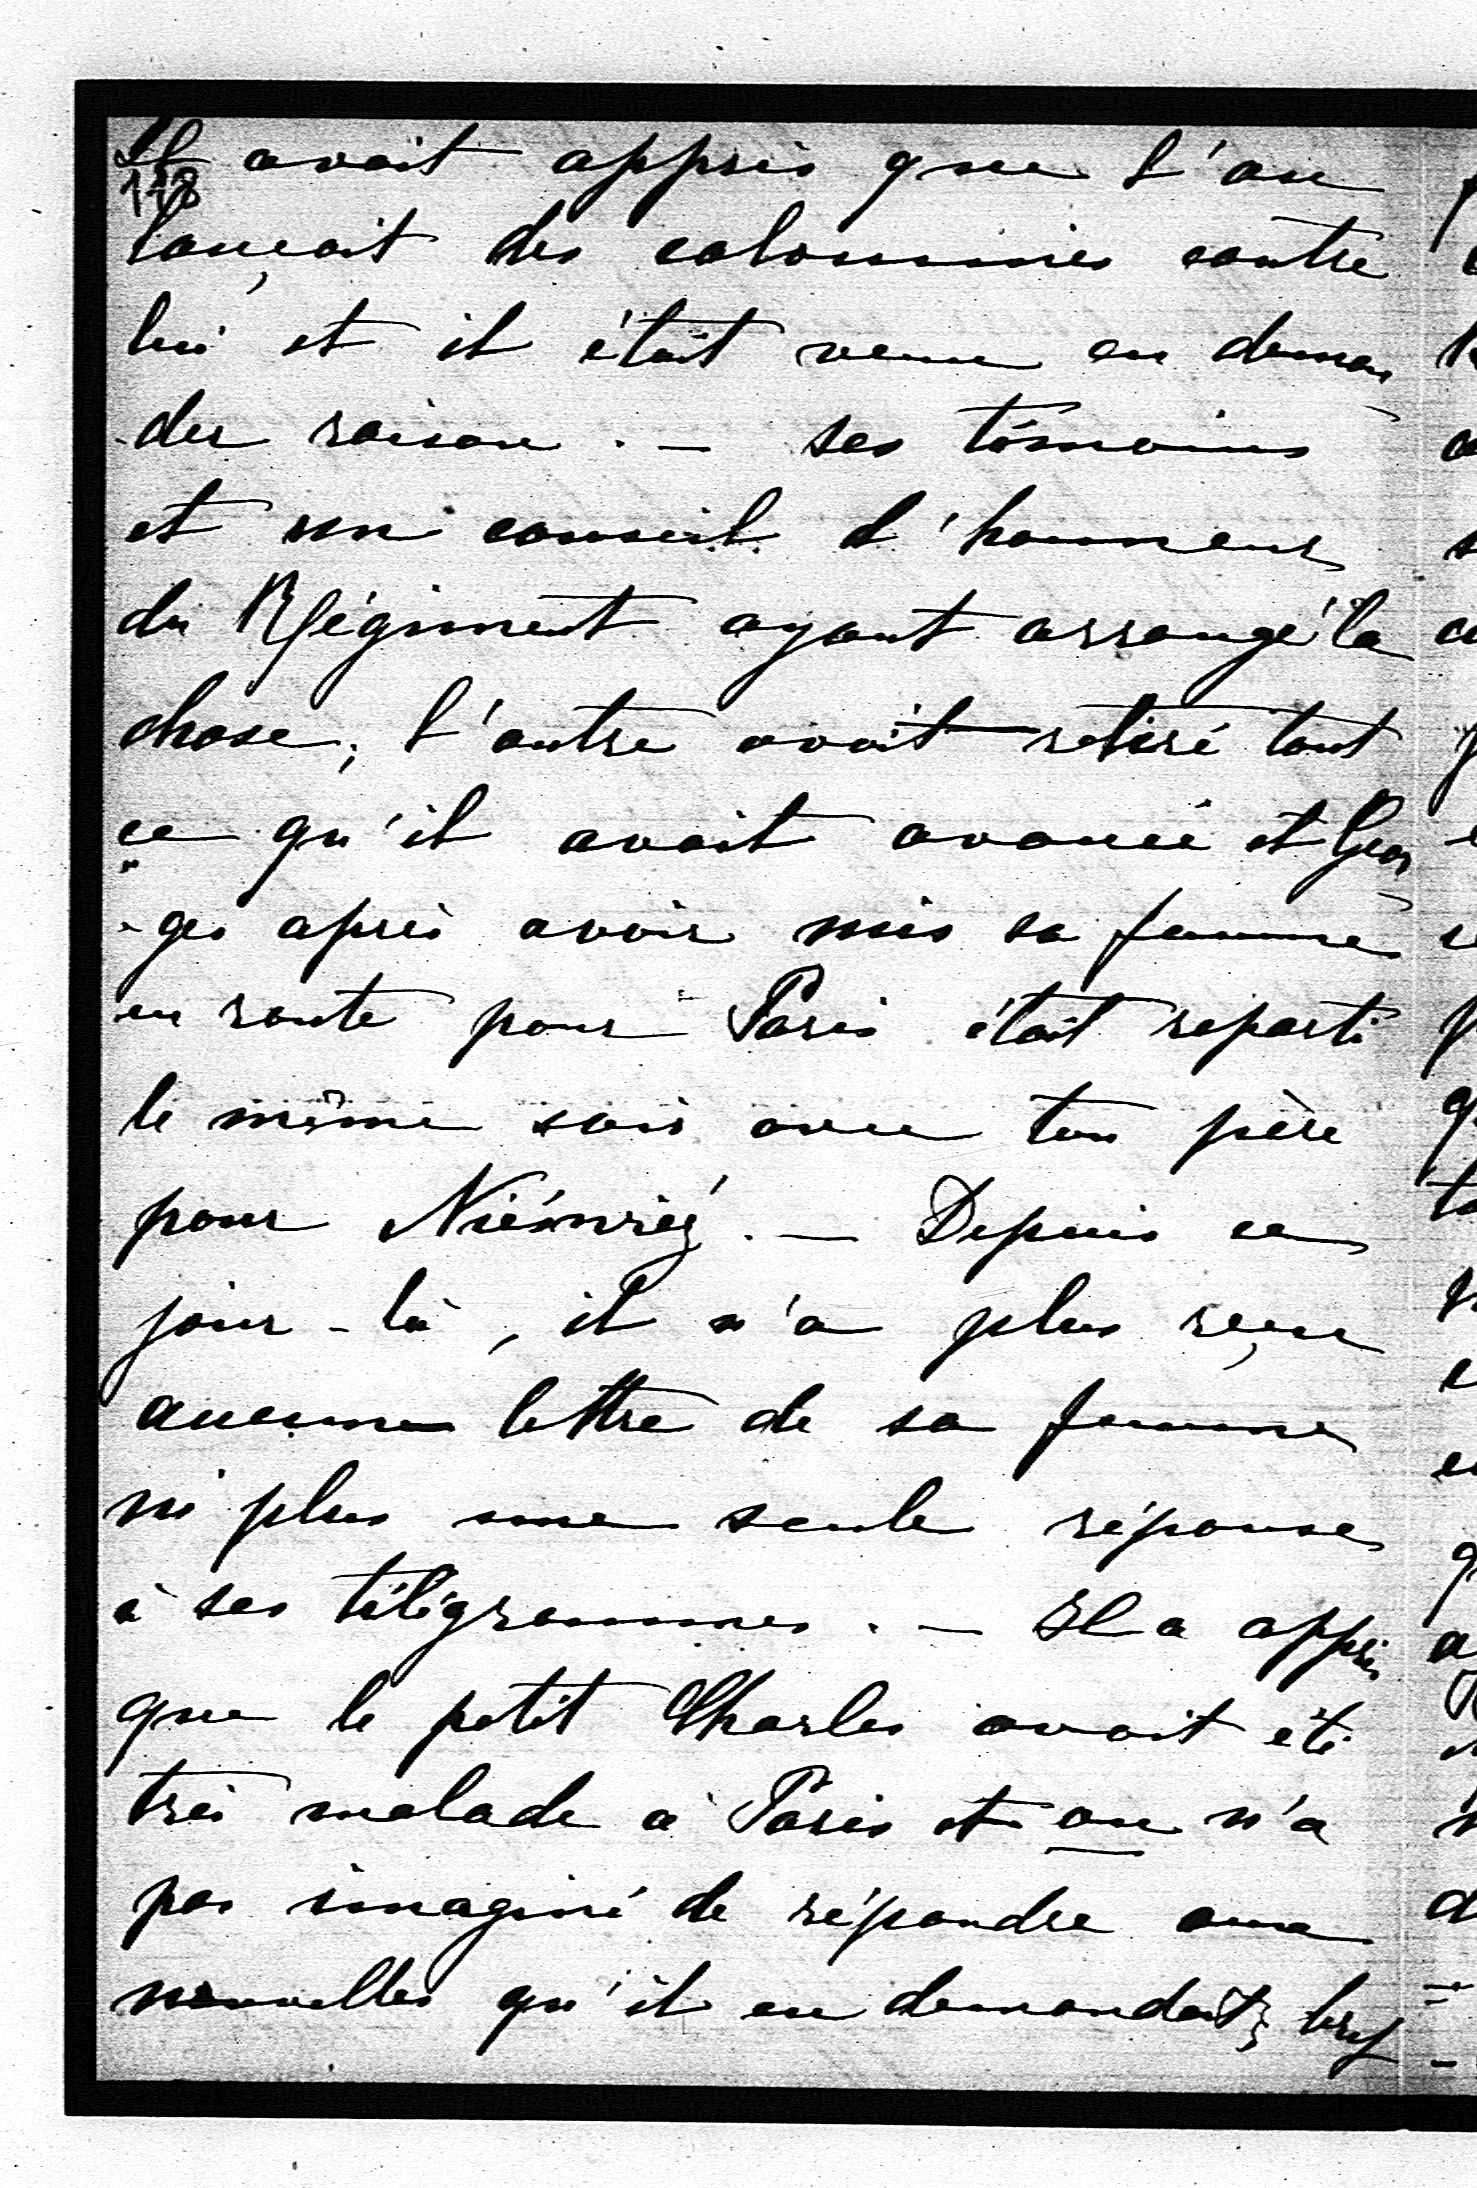 Il avait appris que l'on
118
lançait des calomnies contre
lui et il était venu en deman
-der raison. — ses témoins
et un conseil d'honneur
du Régiment ayant arrangé la
chose, l'autre avait retiré tout
ce qu'il avait avancé et Geor
-ges après avoir mis sa femme
en route pour Paris était reparti
le même soir avec ton père
pour . — Depuis ce
jour-là, il n'a plus reçu
aucune lettre de sa femme
ni plus une seule réponse
à ses télégrammes. — Il a appris
que le petit Charles avait été
très malade à Paris et on n'a
pas imaginé de répondre aux
nouvelles qu'il en demandait; bref